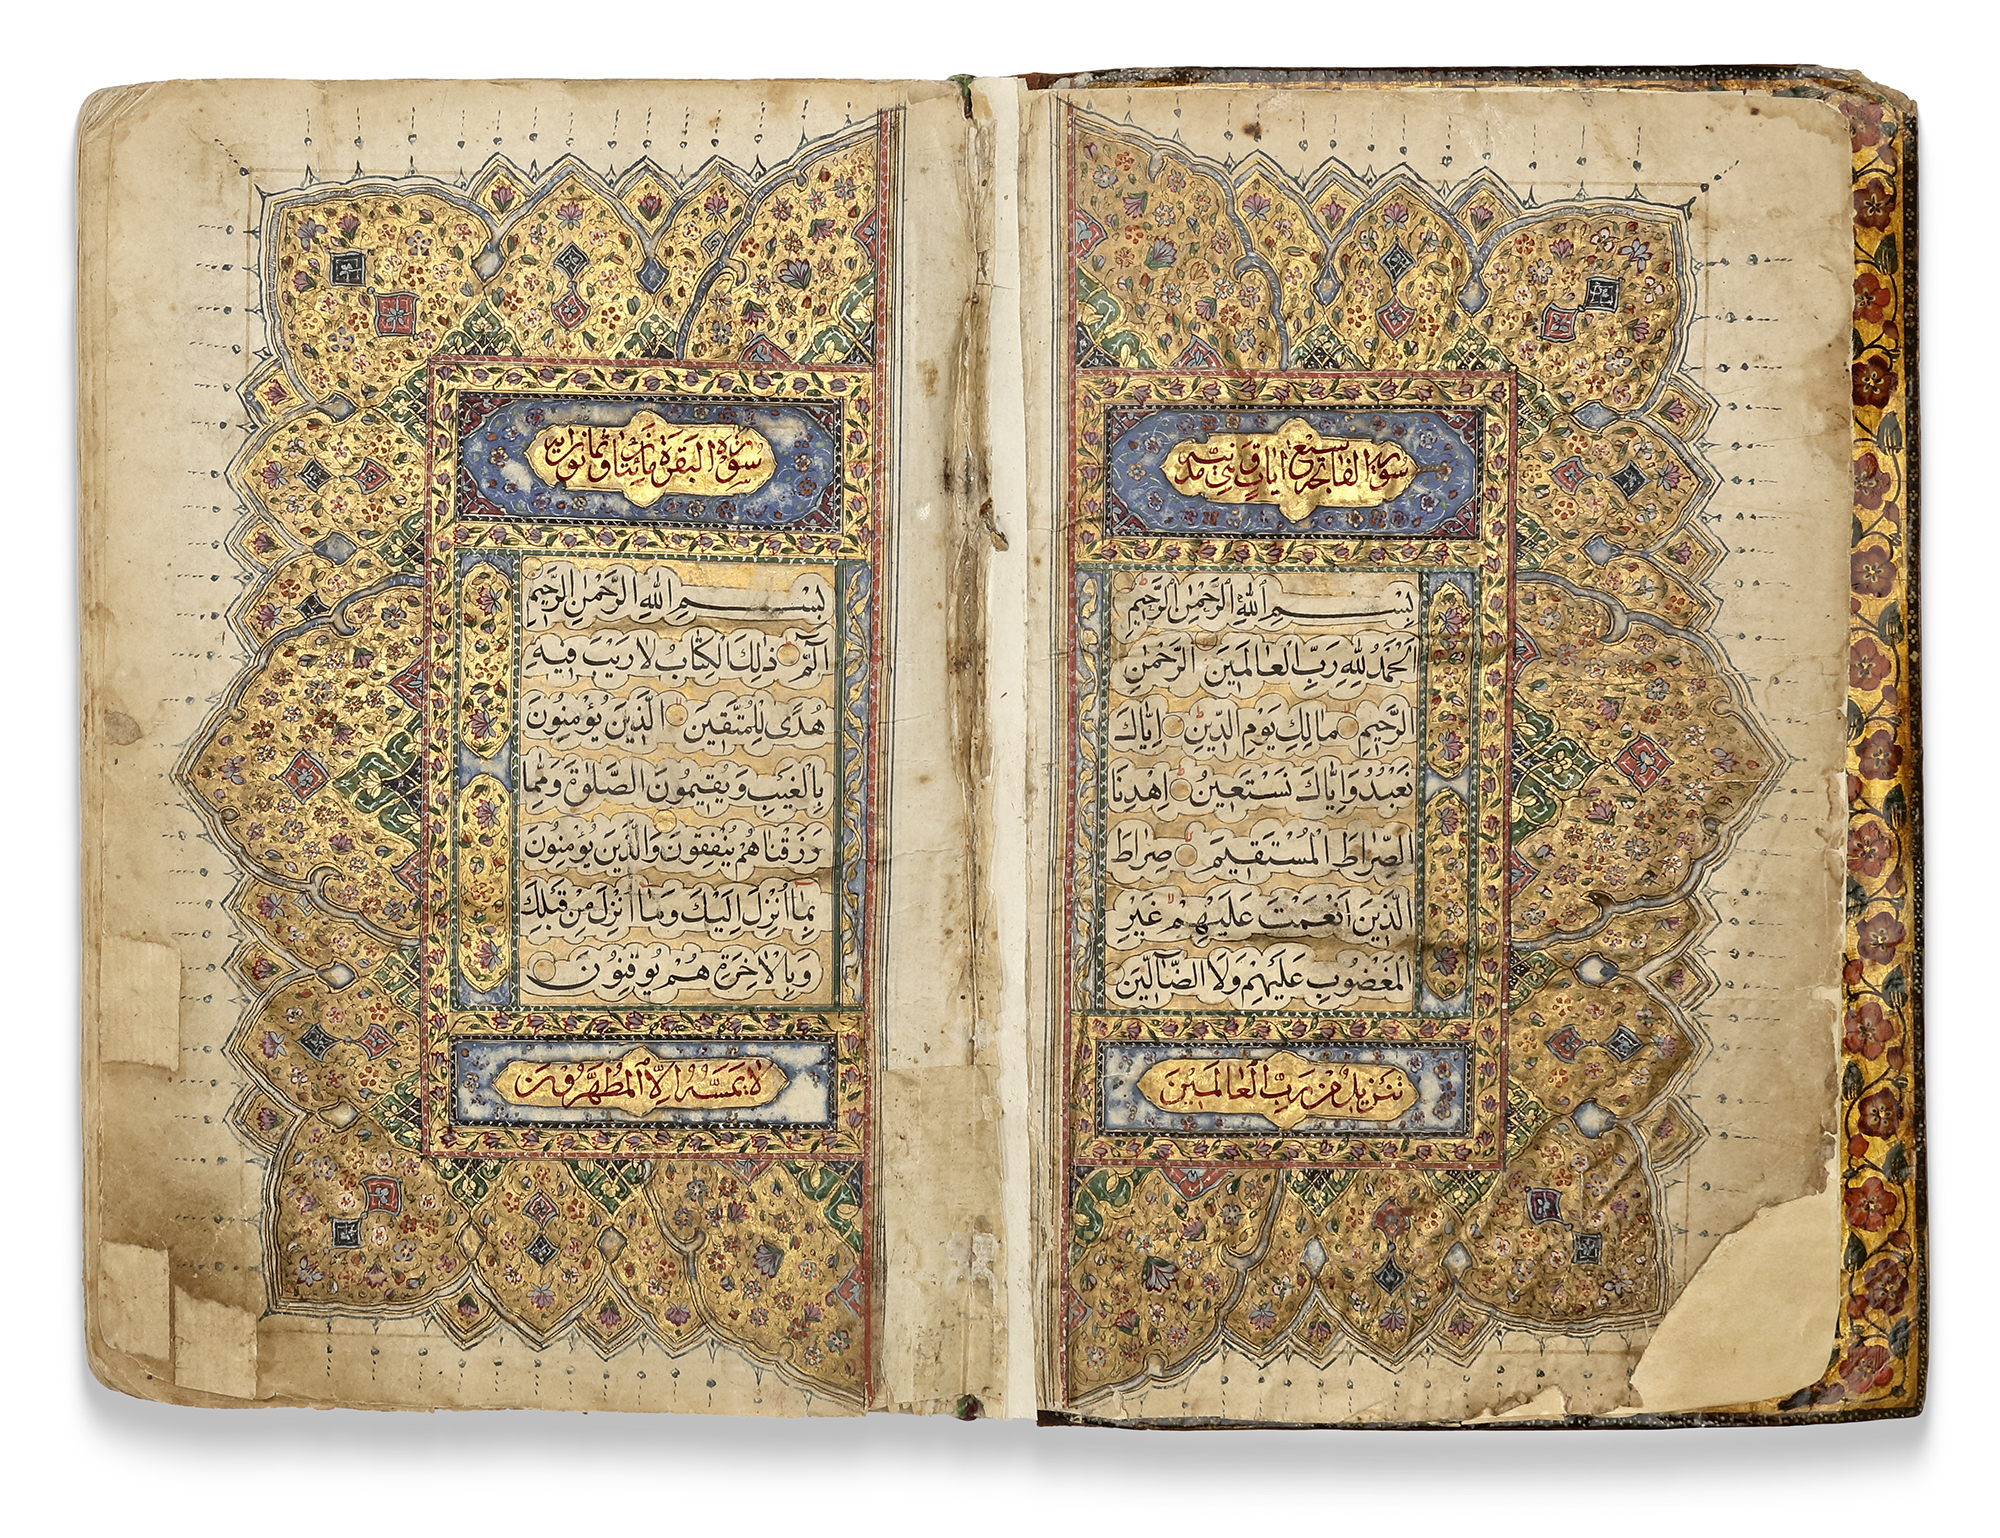 سورة الفاتحة سبع ايات وهي مدنية
بِسْمِ اللهِ الرَّحْمٰنِ الرَّحِيمِ
اَلْحَمْدُ لِلّٰهِ رَبِّ الْعَالَمِينَ الرَّحْمٰنِ
الرَّحِيمِ مَالِكِ يَوْمِ الدِّينِ اِيَّاكَ
نَعْبُدُ وَاِيَّاكَ نَسْتَعِينُ اِهْدِنَا
الصِّرَاطَ الْمُسْتَقِيمَ صِرَاطَ
الَّذِينَ اَنْعَمْتَ عَلَيْهِمْ غَيْرِ
الْمَغْضُوبِ عَلَيْهِمْ وَلَا الضَّآلِّينَ
تَنْزِيلٌ مِنْ رَبِّ الْعَالَمِينَ
سورة البقرة مائتان وثمانون اية
بِسْمِ اللهِ الرَّحْمٰنِ الرَّحِيمِ
الٓمٓ ذٰلِكَ الْكِتَابُ لَا رَيْبَ فِيهِ
هُدًى لِلْمُتَّقِينَ الَّذِينَ يُؤْمِنُونَ
بِالْغَيْبِ وَيُقِيمُونَ الصَّلٰوةَ وَمِمَّا
رَزَقْنَاهُمْ يُنْفِقُونَ وَالَّذِينَ يُؤْمِنُونَ
بِمَآ اُنْزِلَ اِلَيْكَ وَمَآ اُنْزِلَ مِنْ قَبْلِكَ
وَبِالْاٰخِرَةِ هُمْ يُوقِنُونَ
لَا يَمَسُّهُ اِلَّا الْمُطَهَّرُونَ